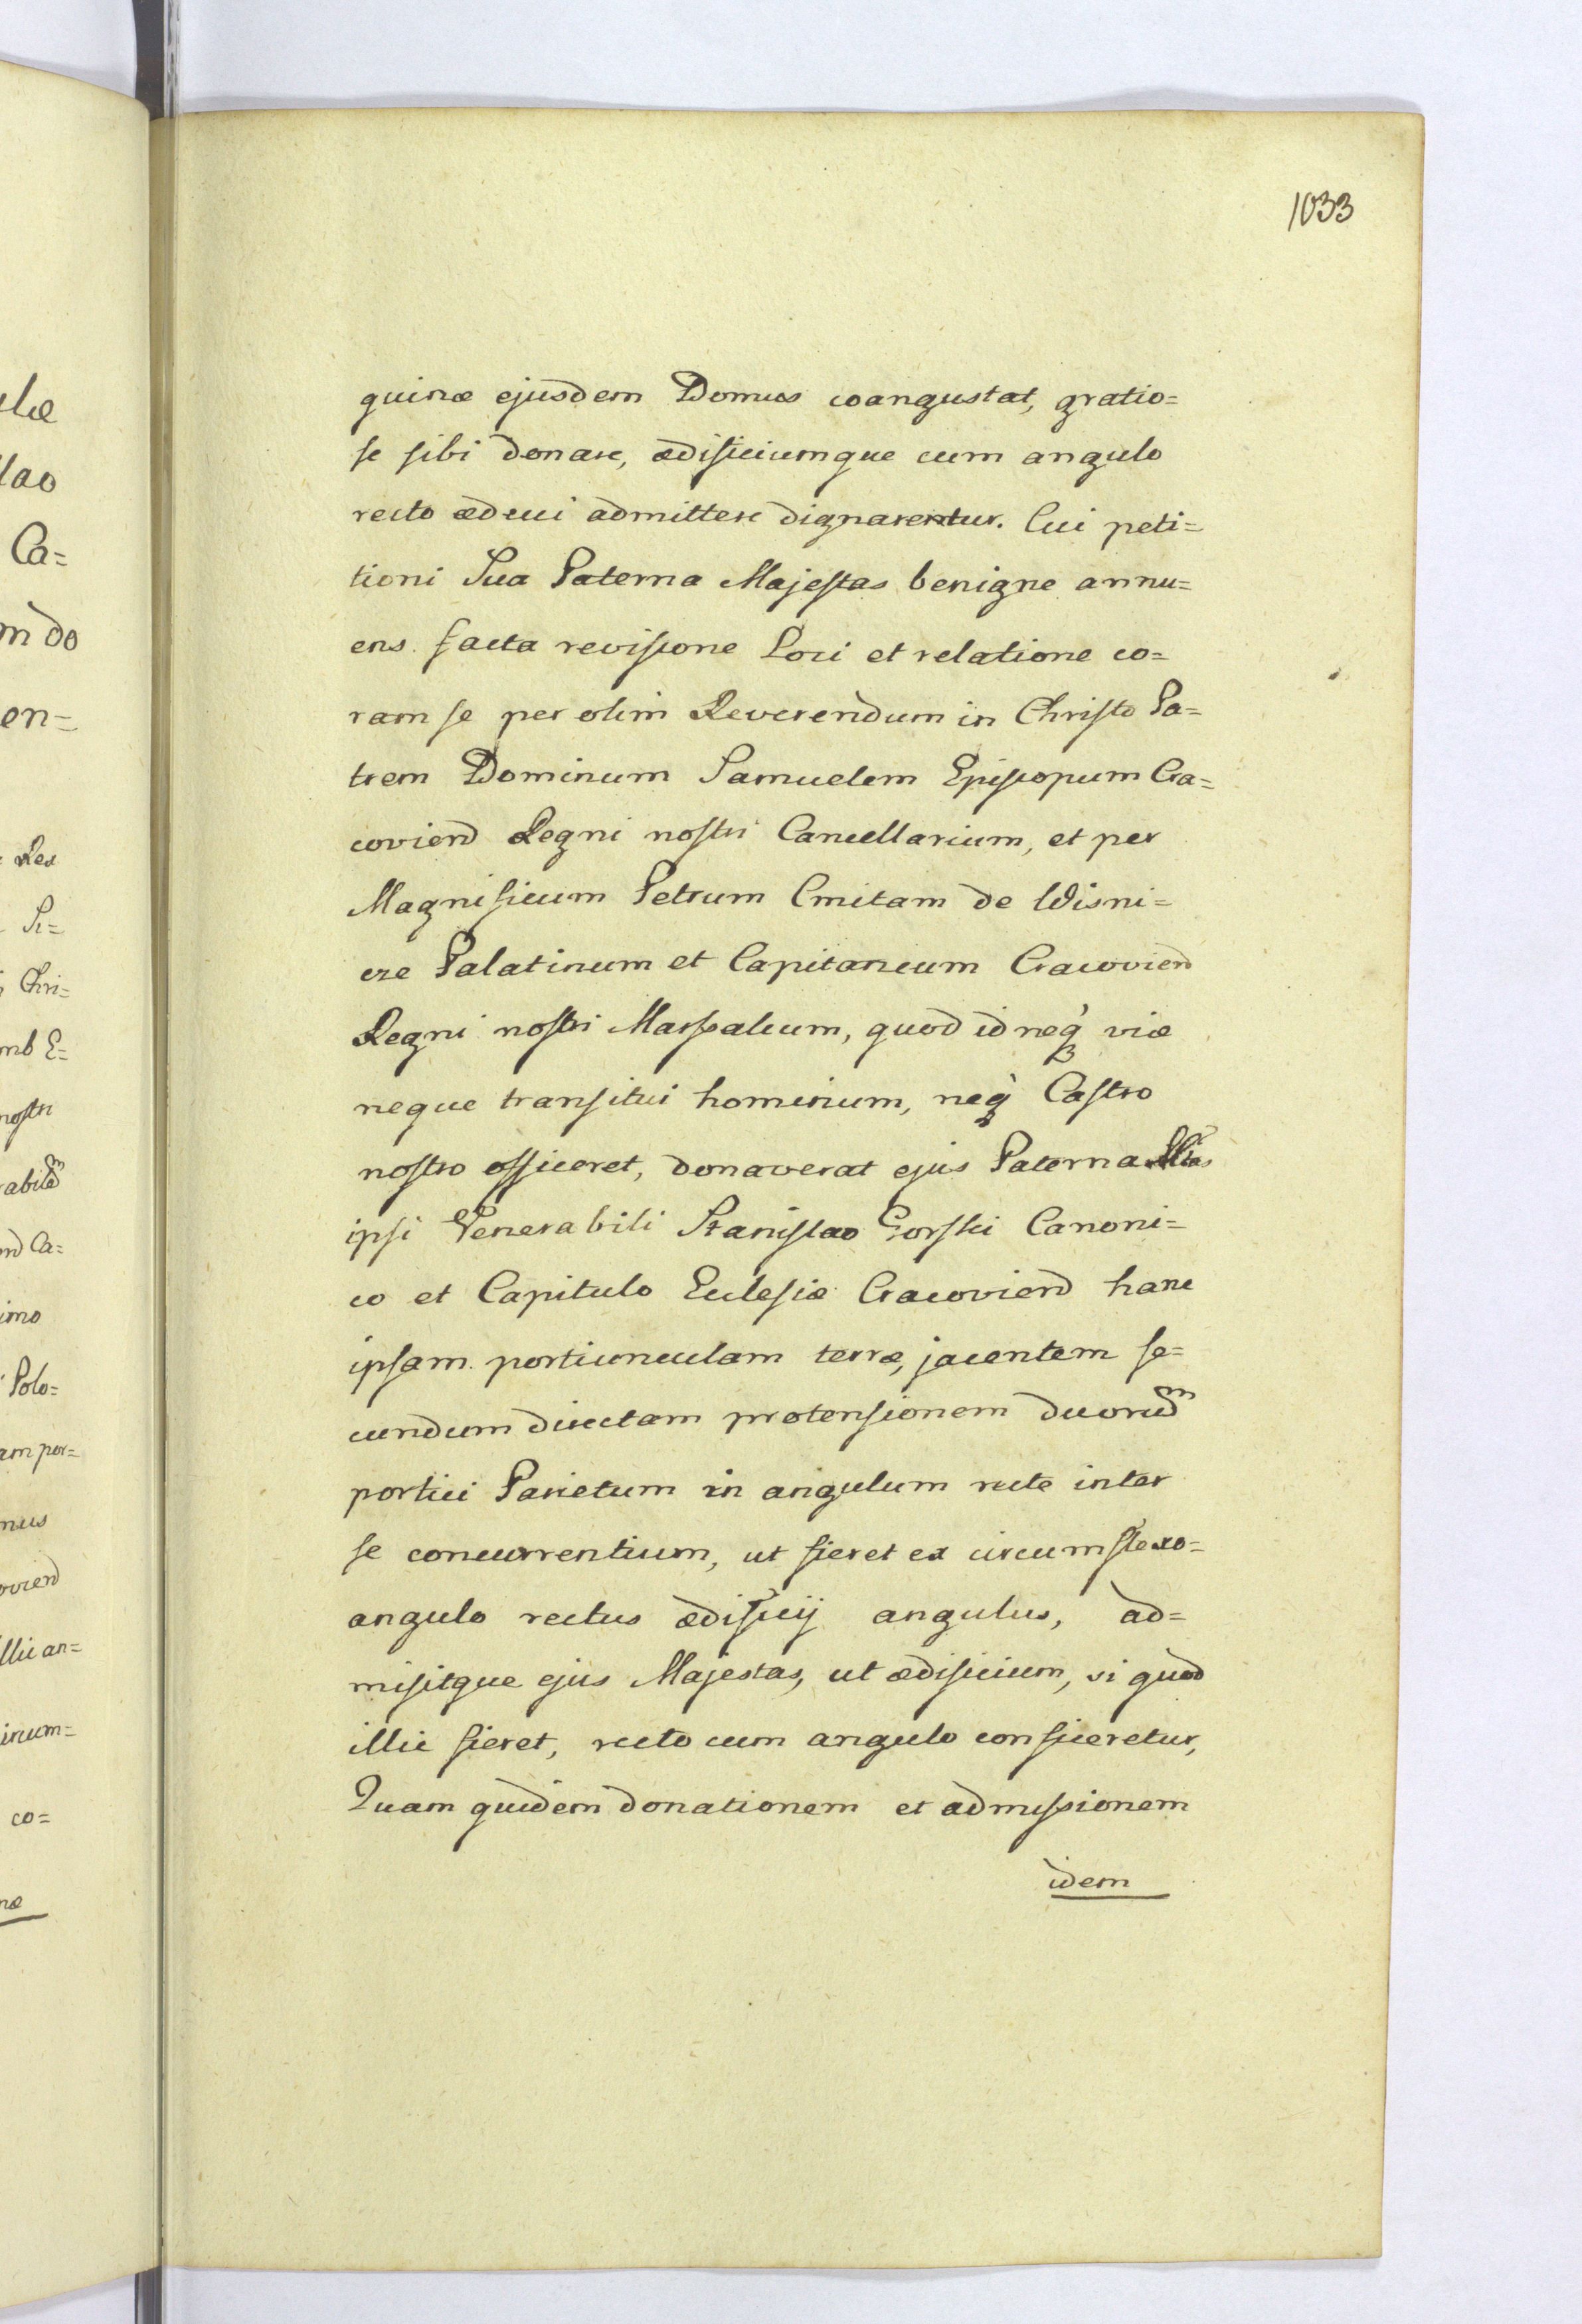 1033
quinæ ejusdem Domus coangustat, gratio=
se sibi donare, ædificiumque cum angulo
recto æduci admittere dignarentur. Cui peti=
tioni Sua Paterna Majestas benigne annu=
ens. facta revisione Loci et relatione co=
ram se per olim Reverendum in Christo Pa=
trem Dominum Samuelem Episcopum Cra=
covien Regni nostri Cancellarium, et per
Magnificum Petrum Cmitam de Wisni=
cze Palatinum et Capitaneum Cracovien
Regni nostri Marsalcum, quod id neq viæ
neque transitui hominum, neq Castro
nostro officeret, donaverat ejus Paterna Mtas
ipsi Venerabili Stanislao Gorski Canoni=
co et Capitulo Ecclesiæ Cracovien hanc
ipsam portiunculam terræ, jacentem se=
cundum directam protensionem duorum
portici Parietum in angulum recte inter
se concurrentium, ut fieret ex circumflexo=
angulo rectus ædificij angulus, ad=
misitque ejus Majestas, ut ædificium, si quod
illic fieret, recto cum angulo conficeretur,
Quam quidem donationem et admissionem
idem
læ
lao
Ca=
m do
en=
Rex
Si=
Chri=
mb E=
nostri
rabilem
nd Ca=
imo
Polo=
am por=
nus
ovien
llic an=
irum=
co=
næ